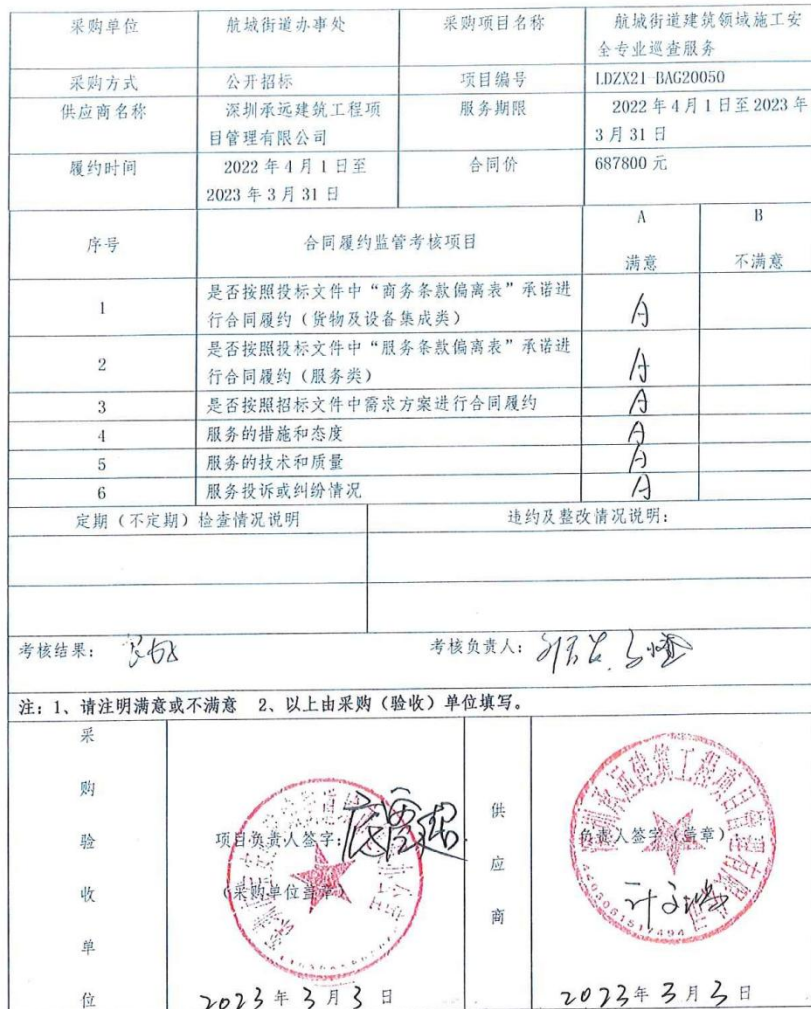 采购单位 航城街道办事处 采购项目名称 航城街道建筑领域施工安
全专业巡查服务
采购方式 公开招标 项目编号 LDZX21-BAG20050
供应商名称 深圳承远建筑工程项 服务期限 2022年4月1日至2023年
目管理有限公司 3月31日
履约时间 2022年4月1日至 合同价 687800元
2023年3月31日
序号 合同履约监管考核项目 A B
满意 不满意
1 是否按照投标文件中“商务条款偏离表”承诺进 A
行合同履约（货物及设备集成类）
2 是否按照投标文件中“服务条款偏离表”承诺进 A
行合同履约（服务类）
3 是否按照招标文件中需求方案进行合同履约 A
4 服务的措施和态度 A
5 服务的技术和质量 A
6 服务投诉或纠纷情况 A
定期（不定期）检查情况说明 违约及整改情况说明：
考核结果： 考核负责人：
注：1、请注明满意或不满意 2、以上由采购（验收）单位填写。
采购验收单位
项目负责人签字：
（采购单位盖章）
2023年3月3日
供应商
深圳承远建筑工程项目管理有限公司
负责人签字（盖章）
2023年3月3日